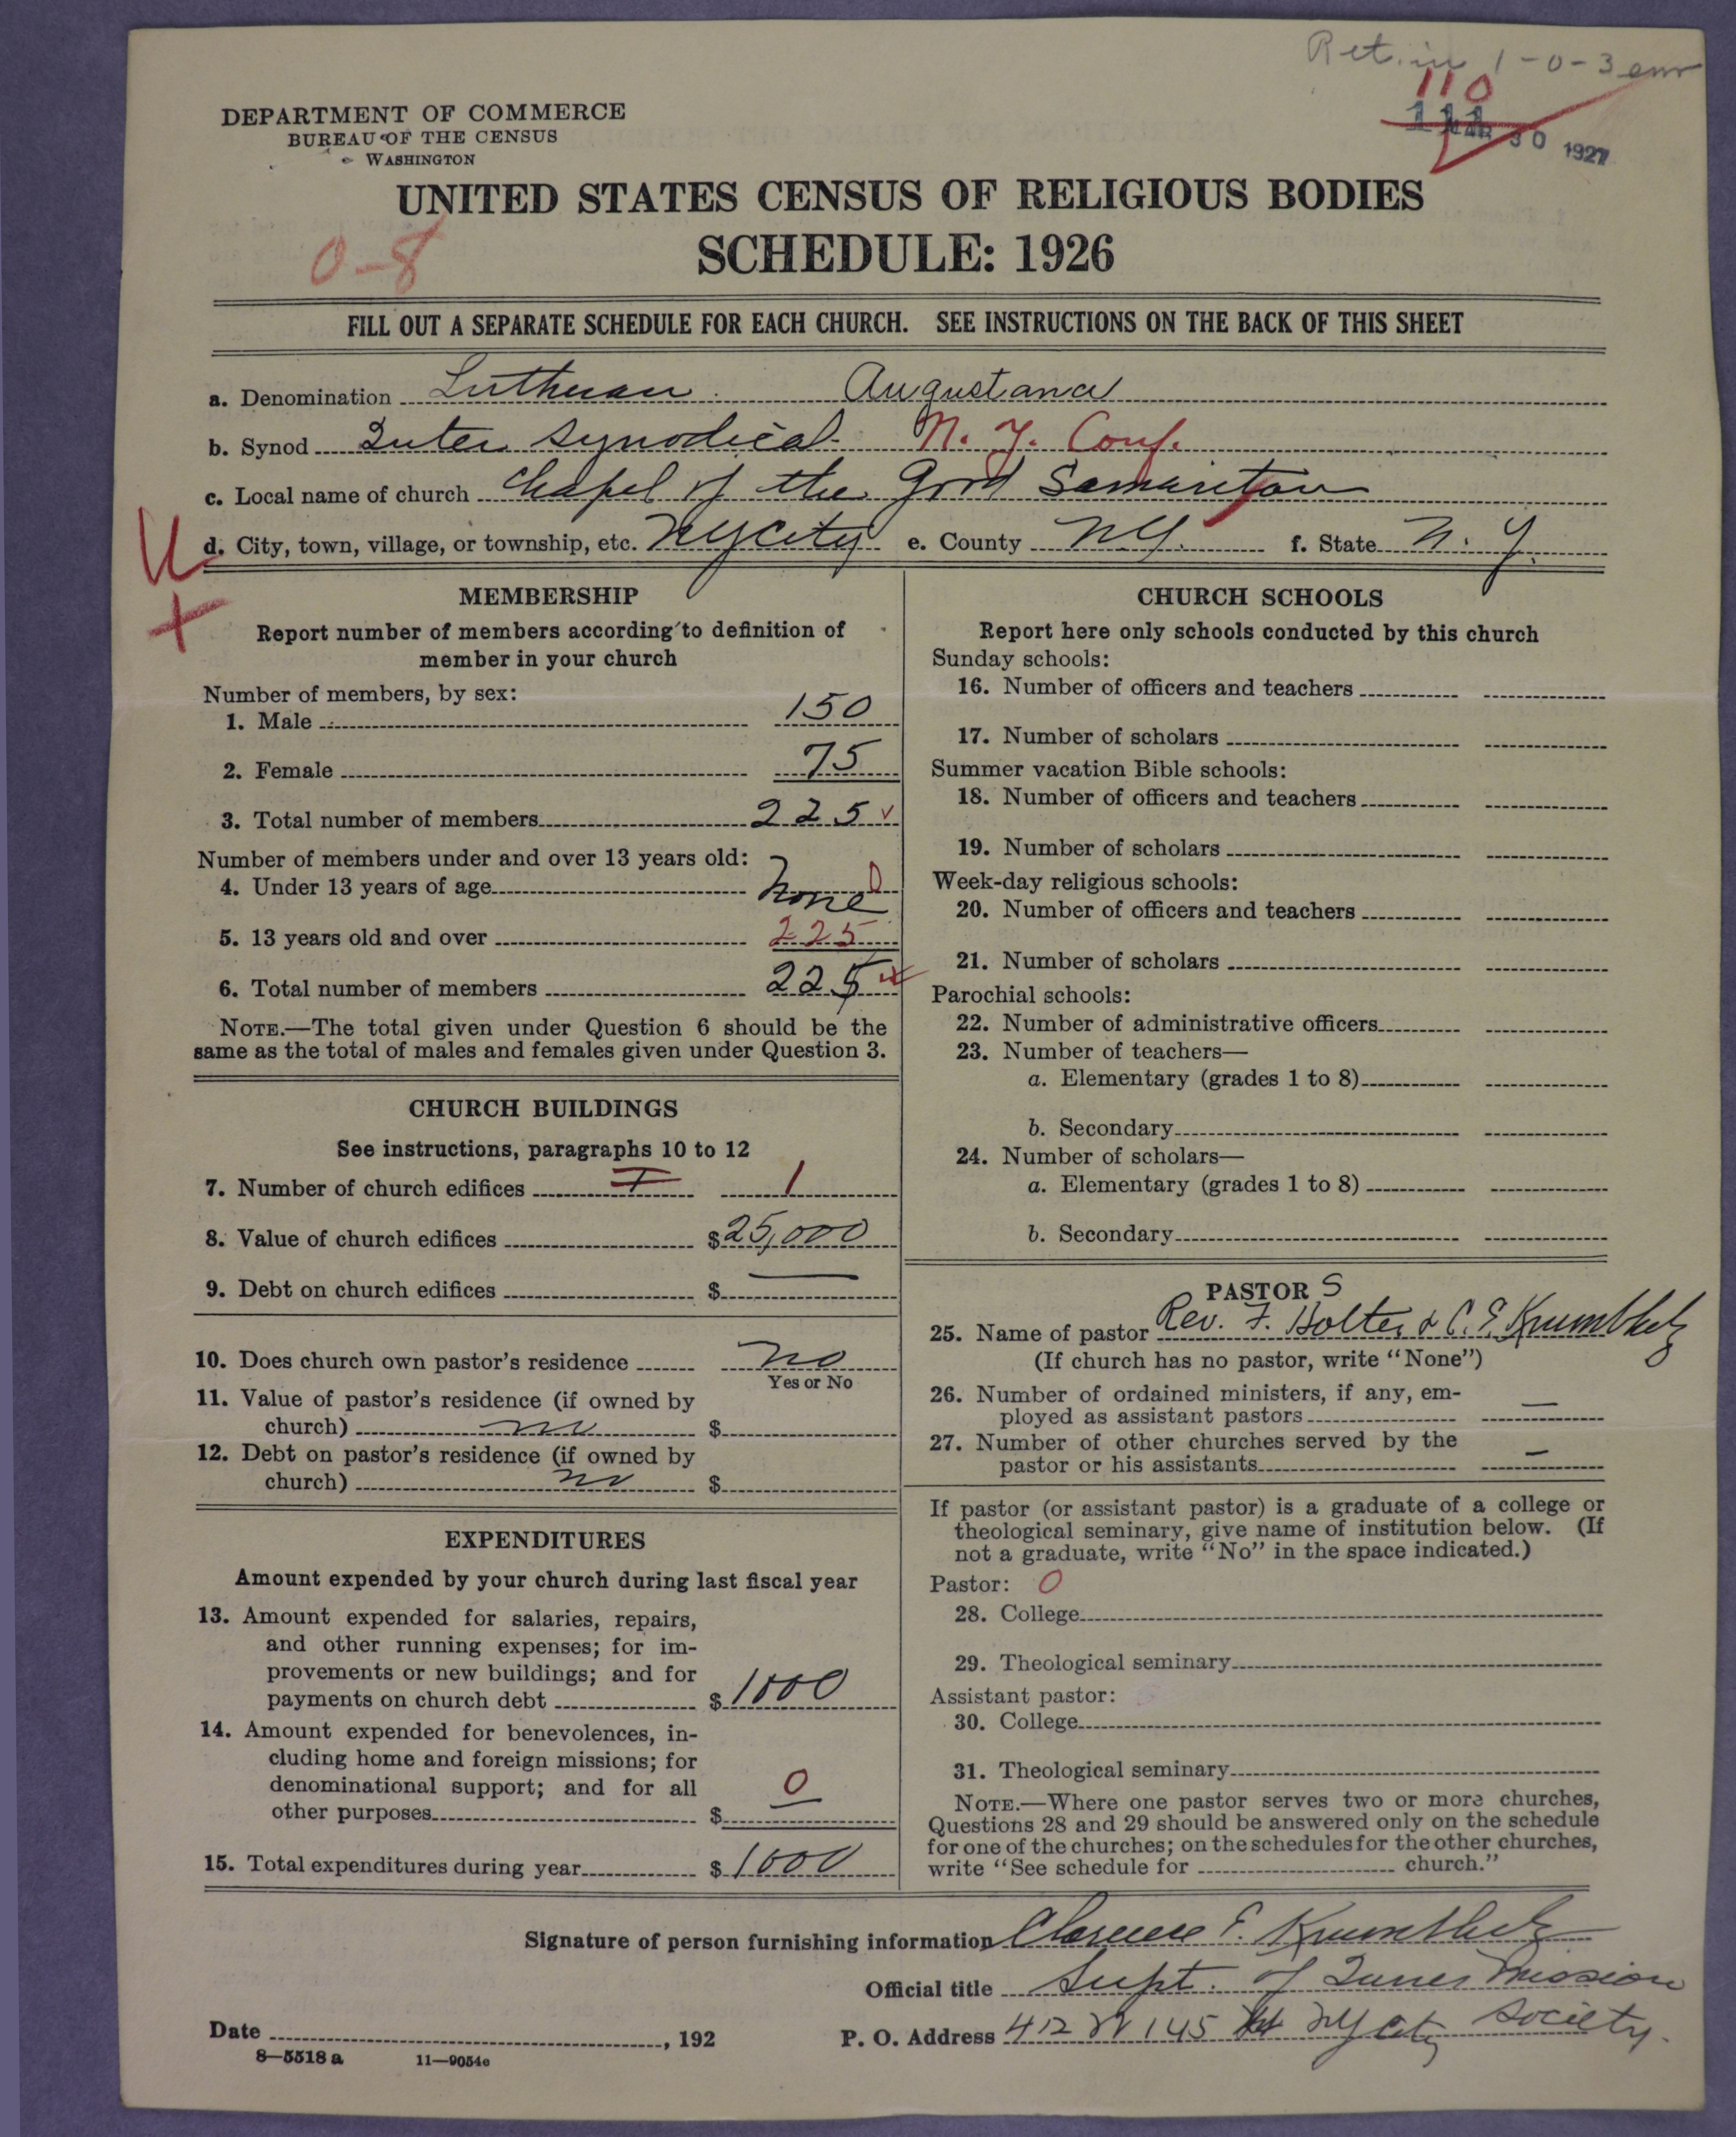 Ret. in 1-0-3 enr
110
111
MAR 30 1927
DEPARTMENT OF COMMERCE
BUREAU OF THE CENSUS
WASHINGTON
UNITED STATES CENSUS OF RELIGIOUS BODIES
0-8
SCHEDULE: 1926
FILL OUT A SEPARATE SCHEDULE FOR EACH CHURCH. SEE INSTRUCTIONS ON THE BACK OF THIS SHEET
a. Denomination Lutheran Augustana
b. Synod Inter Synodical N. Y. Conf.
c. Local name of church Chapel of the Good Samaritan
d. City, town, village, or township, etc. NY City e. County NY. f. State N. Y.
MEMBERSHIP
Report number of members according to definition of
member in your church
Number of members, by sex:
1. Male 150
2. Female 75
3. Total number of members 225
Number of members under and over 13 years old:
4. Under 13 years of age None 0
5. 13 years old and over 225
6. Total number of members 225
NOTE.—The total given under Question 6 should be the
same as the total of males and females given under Question 3.
CHURCH BUILDINGS
See instructions, paragraphs 10 to 12
7. Number of church edifices I 1
8. Value of church edifices $25,000
9. Debt on church edifices $ —
10. Does church own pastor's residence no
Yes or No
11. Value of pastor's residence (if owned by
church) no $
12. Debt on pastor's residence (if owned by
church) no $
EXPENDITURES
Amount expended by your church during last fiscal year
13. Amount expended for salaries, repairs,
and other running expenses; for im-
provements or new buildings; and for
payments on church debt $1000
14. Amount expended for benevolences, in-
cluding home and foreign missions; for
denominational support; and for all
other purposes $ 0
15. Total expenditures during year $1000
CHURCH SCHOOLS
Report here only schools conducted by this church
Sunday schools:
16. Number of officers and teachers
17. Number of scholars
Summer vacation Bible schools:
18. Number of officers and teachers
19. Number of scholars
Week-day religious schools:
20. Number of officers and teachers
21. Number of scholars
Parochial schools:
22. Number of administrative officers
23. Number of teachers—
a. Elementary (grades 1 to 8)
b. Secondary
24. Number of scholars—
a. Elementary (grades 1 to 8)
b. Secondary
PASTOR S
25. Name of pastor Rev. F. Holter & C. E. Krumbholz
(If church has no pastor, write "None")
26. Number of ordained ministers, if any, em-
ployed as assistant pastors —
27. Number of other churches served by the
pastor or his assistants —
If pastor (or assistant pastor) is a graduate of a college or
theological seminary, give name of institution below. (If
not a graduate, write "No" in the space indicated.)
Pastor: 0
28. College
29. Theological seminary
Assistant pastor:
30. College
31. Theological seminary
NOTE.—Where one pastor serves two or more churches,
Questions 28 and 29 should be answered only on the schedule
for one of the churches; on the schedules for the other churches,
write "See schedule for church."
Signature of person furnishing information Clarence E. Krumbholz
Official title Supt. of Inner Mission
Society.
Date , 192
P. O. Address 412 W 145 St NY City
8—5518 a 11—9054e